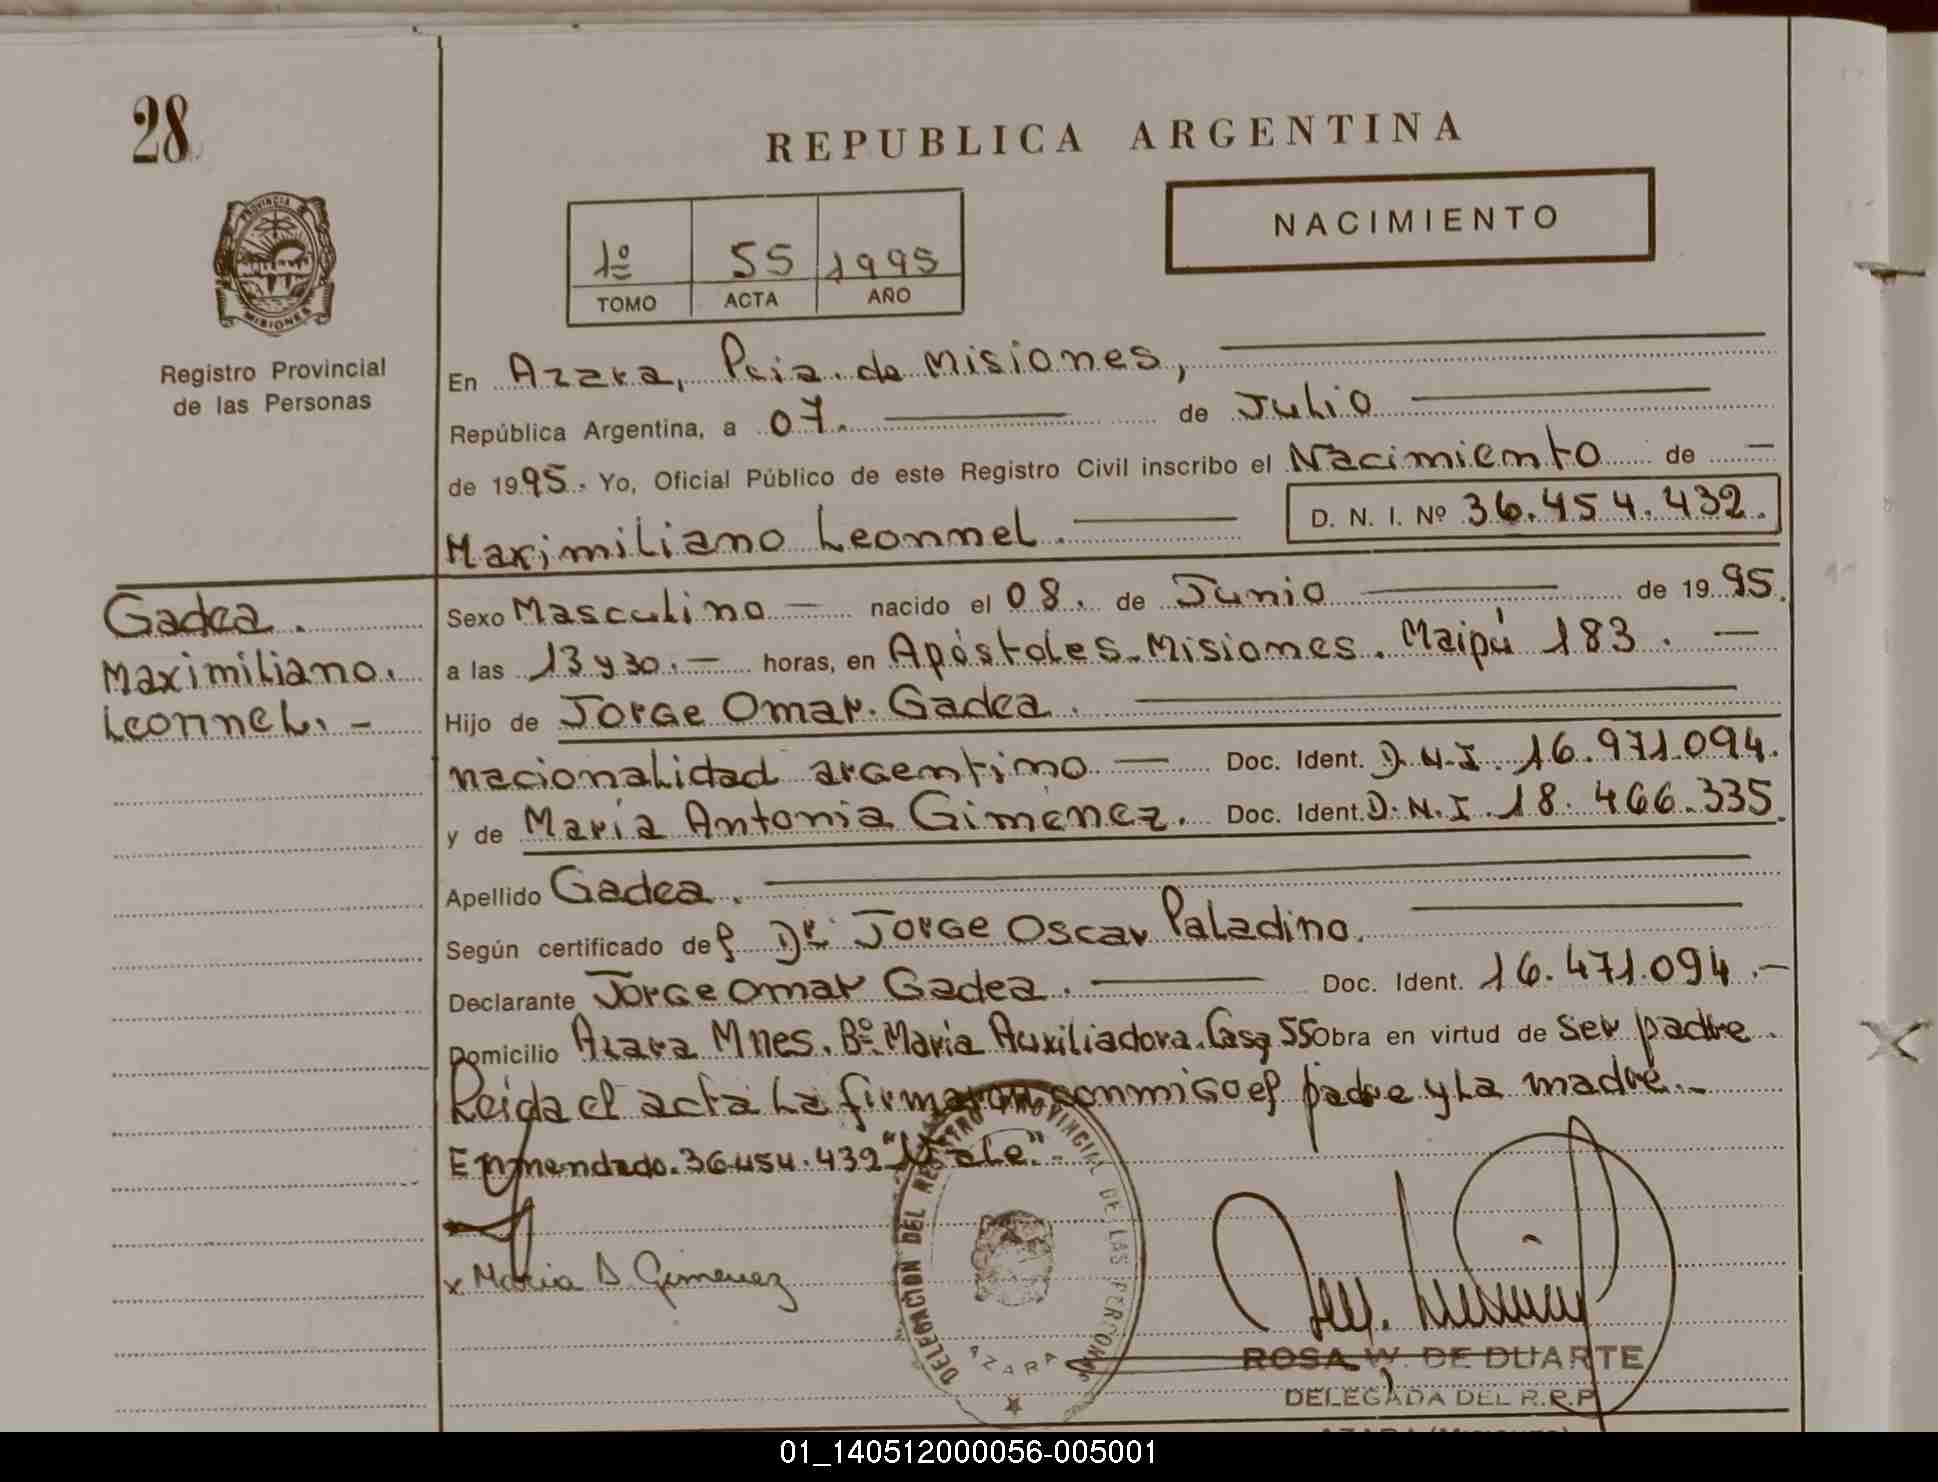 28
REPUBLICA ARGENTINA
NACIMIENTO
1º 55 1995
TOMO ACTA AÑO
PROVINCIA
MISIONES
Registro Provincial
de las Personas
En Azara, Pcia. de Misiones,
República Argentina, a 07. de Julio
de 1995. Yo, Oficial Público de este Registro Civil inscribo el Nacimiento de
Maximiliano Leonnel. D. N. I. Nº 36.454.432.
Gadea.
Maximiliano.
Leonnel. -
Sexo Masculino — nacido el 08. de Junio de 1995.
a las 13 y 30. — horas, en Apóstoles. Misiones. Maipú 183. —
Hijo de Jorge Omar. Gadea.
nacionalidad argentino — Doc. Ident. D.N.I. 16.971.094.
y de María Antonia Giménez. Doc. Ident. D.N.I. 18.466.335
Apellido Gadea.
Según certificado del Dr. Jorge Oscar Paladino.
Declarante Jorge Omar Gadea. Doc. Ident. 16.471.094.—
Domicilio Azara Mnes. Bº María Auxiliadora. Casa 55 Obra en virtud de ser padre.
Leida el acta La firmaron conmigo el padre y La madre.-
Enmendado. 36.454.432 "Vale".-
x Maria A. Gimenez
DELEGACION DEL REGISTRO PROVINCIAL DE LAS PERSONAS
AZARA
ROSA W. DE DUARTE
DELEGADA DEL R.R.P
AZARA (Misiones)
01_140512000056-005001